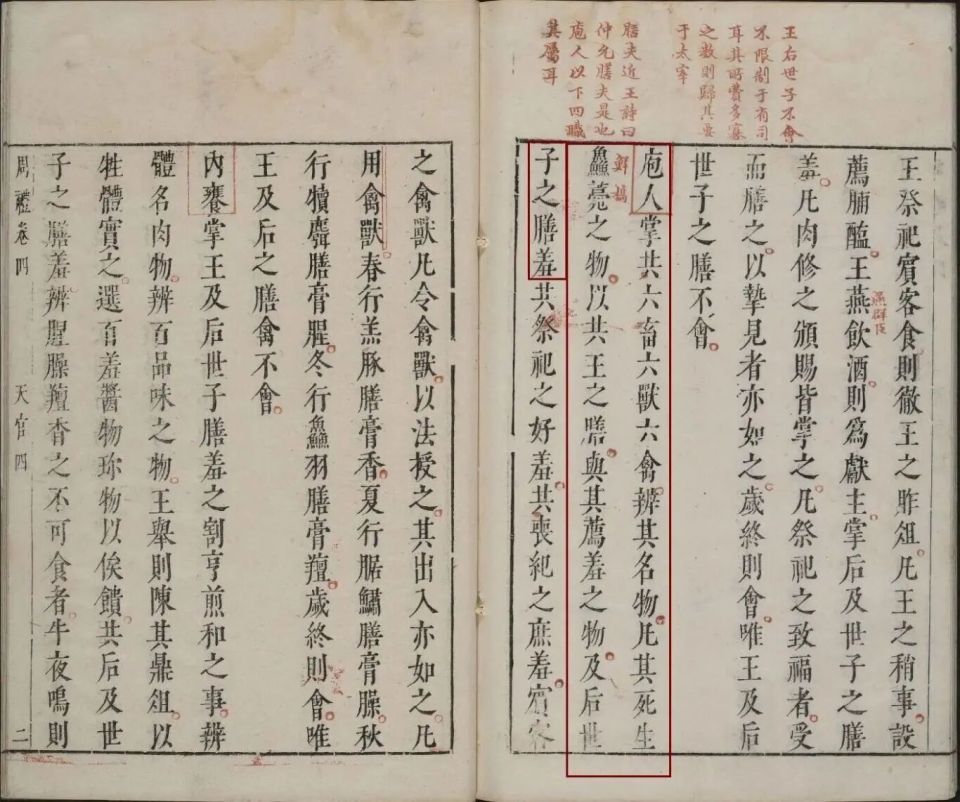 王后世子不會
不限制于有司
耳其所費多寡
之數則歸其要
于太宰
膳夫近王詩曰
仲允膳夫是也
庖人以下四職
其屬耳
王祭祀賓客食則徹王之胙俎凡王之稍事設
薦脯醢王燕飲酒則為獻主掌后及世子之膳
燕群臣
羞凡肉修之頒賜皆掌之凡祭祀之致福者受
而膳之以摯見者亦如之歲終則會唯王及后
世子之膳不會
庖人掌共六畜六獸六禽辨其名物凡其死生
鮮槁
鱻薧之物以共王之膳與其薦羞之物及后世
子之膳羞共祭祀之好羞共喪紀之庶羞賓客
之禽獸凡令禽獸以法授之其出入亦如之凡
用禽獸春行羔豚膳膏香夏行腒鱐膳膏臊秋
行犢麛膳膏腥冬行鱻羽膳膏羶歲終則會唯
王及后之膳禽不會
內饔掌王及后世子膳羞之割亨煎和之事辨
體名肉物辨百品味之物王舉則陳其鼎俎以
牲體實之選百羞醬物珍物以俟饋共后及世
子之膳羞辨腥臊羶香之不可食者牛夜鳴則
周禮卷四 天官四 二